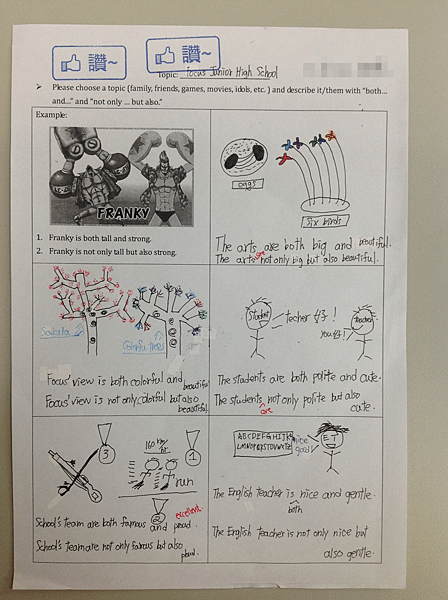 讚~
讚~
Topic: Focus Junior High School
➤ Please choose a topic (family, friends, games, movies, idols, etc. ) and describe it/them with "both…
and…" and "not only … but also."
Example:
FRANKY
1. Franky is both tall and strong.
2. Franky is not only tall but also strong.
eggs
six birds
The arts are both big and beautiful.
The arts are not only big but also beautiful.
Sakula
Focus' view is both colorful and beautiful
Focus' view is not only colorful but also
beautiful.
Student
techer 好!
teacher
you好!
The students are both polite and cute.
The students are not only polite but also
cute.
3
1
2
run
School's team are both famous and proud.
excellent.
School's team are not only famous but also
proud.
ABCDEFGHIJK
LMNOPQRSTUVWXYZ
nice
good
ET
The English teacher is both nice and gentle.
The English teacher is not only nice but
also gentle.